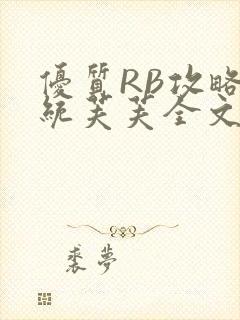 優質RB攻略
統芙芙全文
裘夢